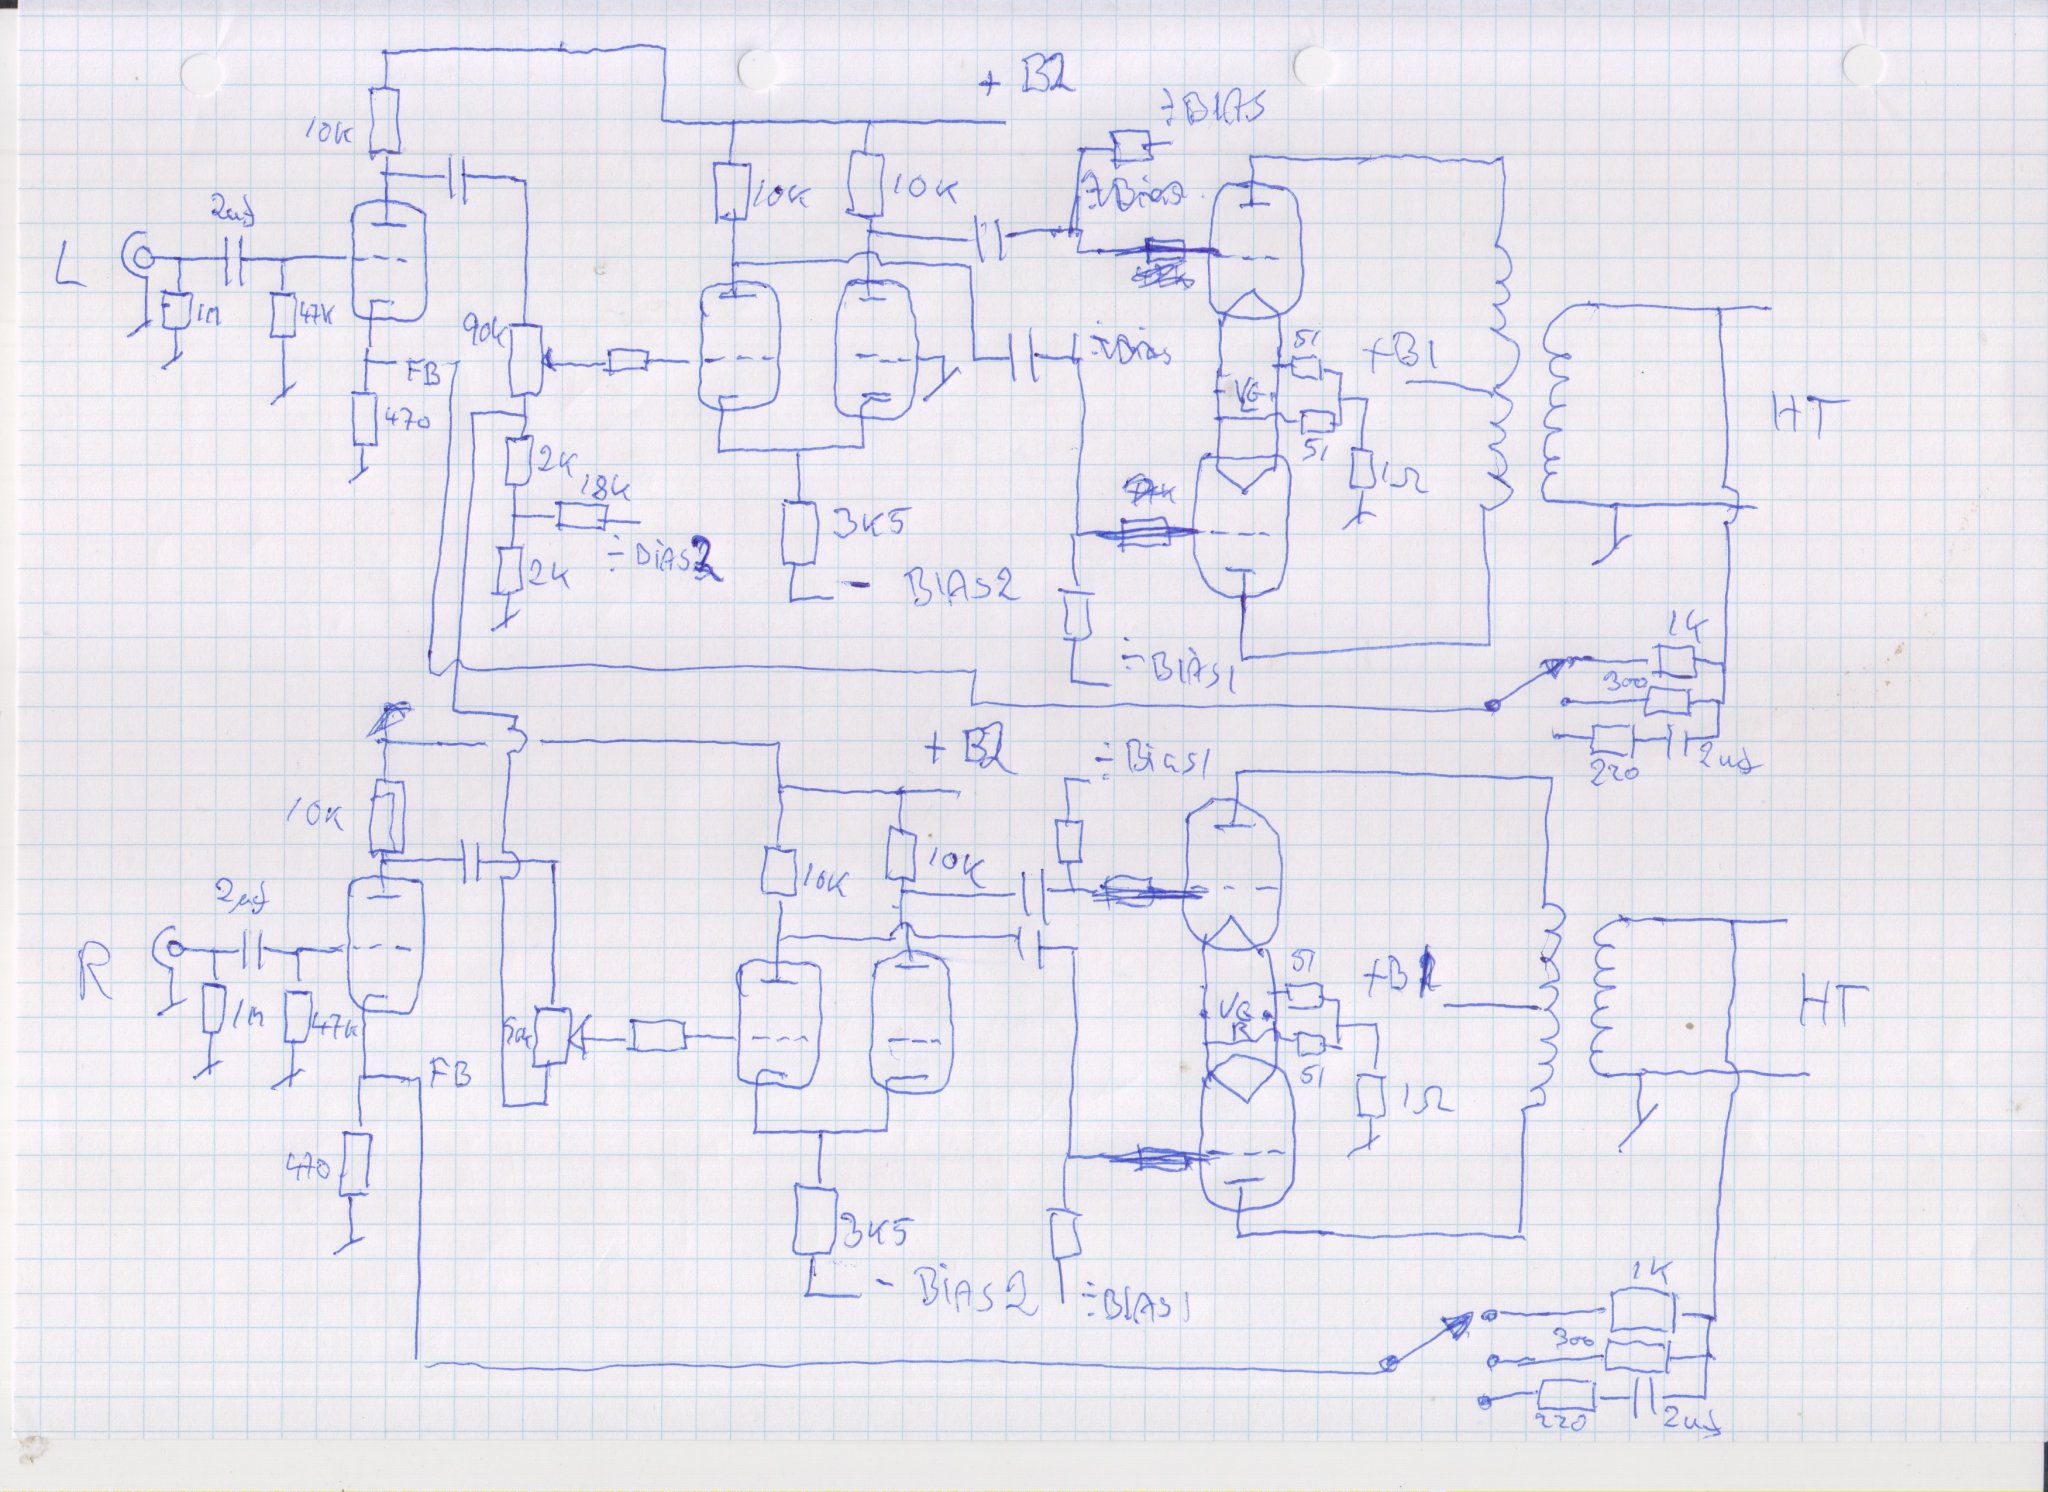 + B2
÷ BIAS
10K
10K
10K
÷Bias
2uf
L
1M
47K
90K
÷Bias
51
+B1
FB
VG
HT
470
51
2K
1Ω
18K
3K5
÷ BiAS2
2K
- BIAS2
1K
÷ BIAS1
300
220
2uf
+ B2
÷ Bias1
10K
10K
10K
2uf
R
51
+B1
VG
HT
1M
47K
50K
51
FB
1Ω
470
3K5
- BiAS2
÷BIAS1
1K
300
220
2uf